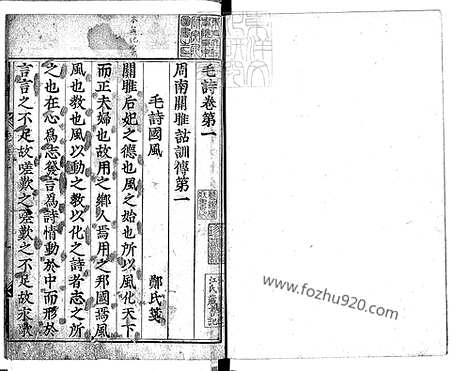 毛詩卷第一
周南關雎詁訓傳第一
毛詩國風 鄭氏箋
關雎后妃之德也風之始也所以風化天下
而正夫婦也故用之鄉人焉用之邦國焉風
風也教也風以動之教以化之詩者志之所
之也在心為志發言為詩情動於中而形於
言言之不足故嗟歎之嗟歎之不足故永歌
www.fozhu920.com